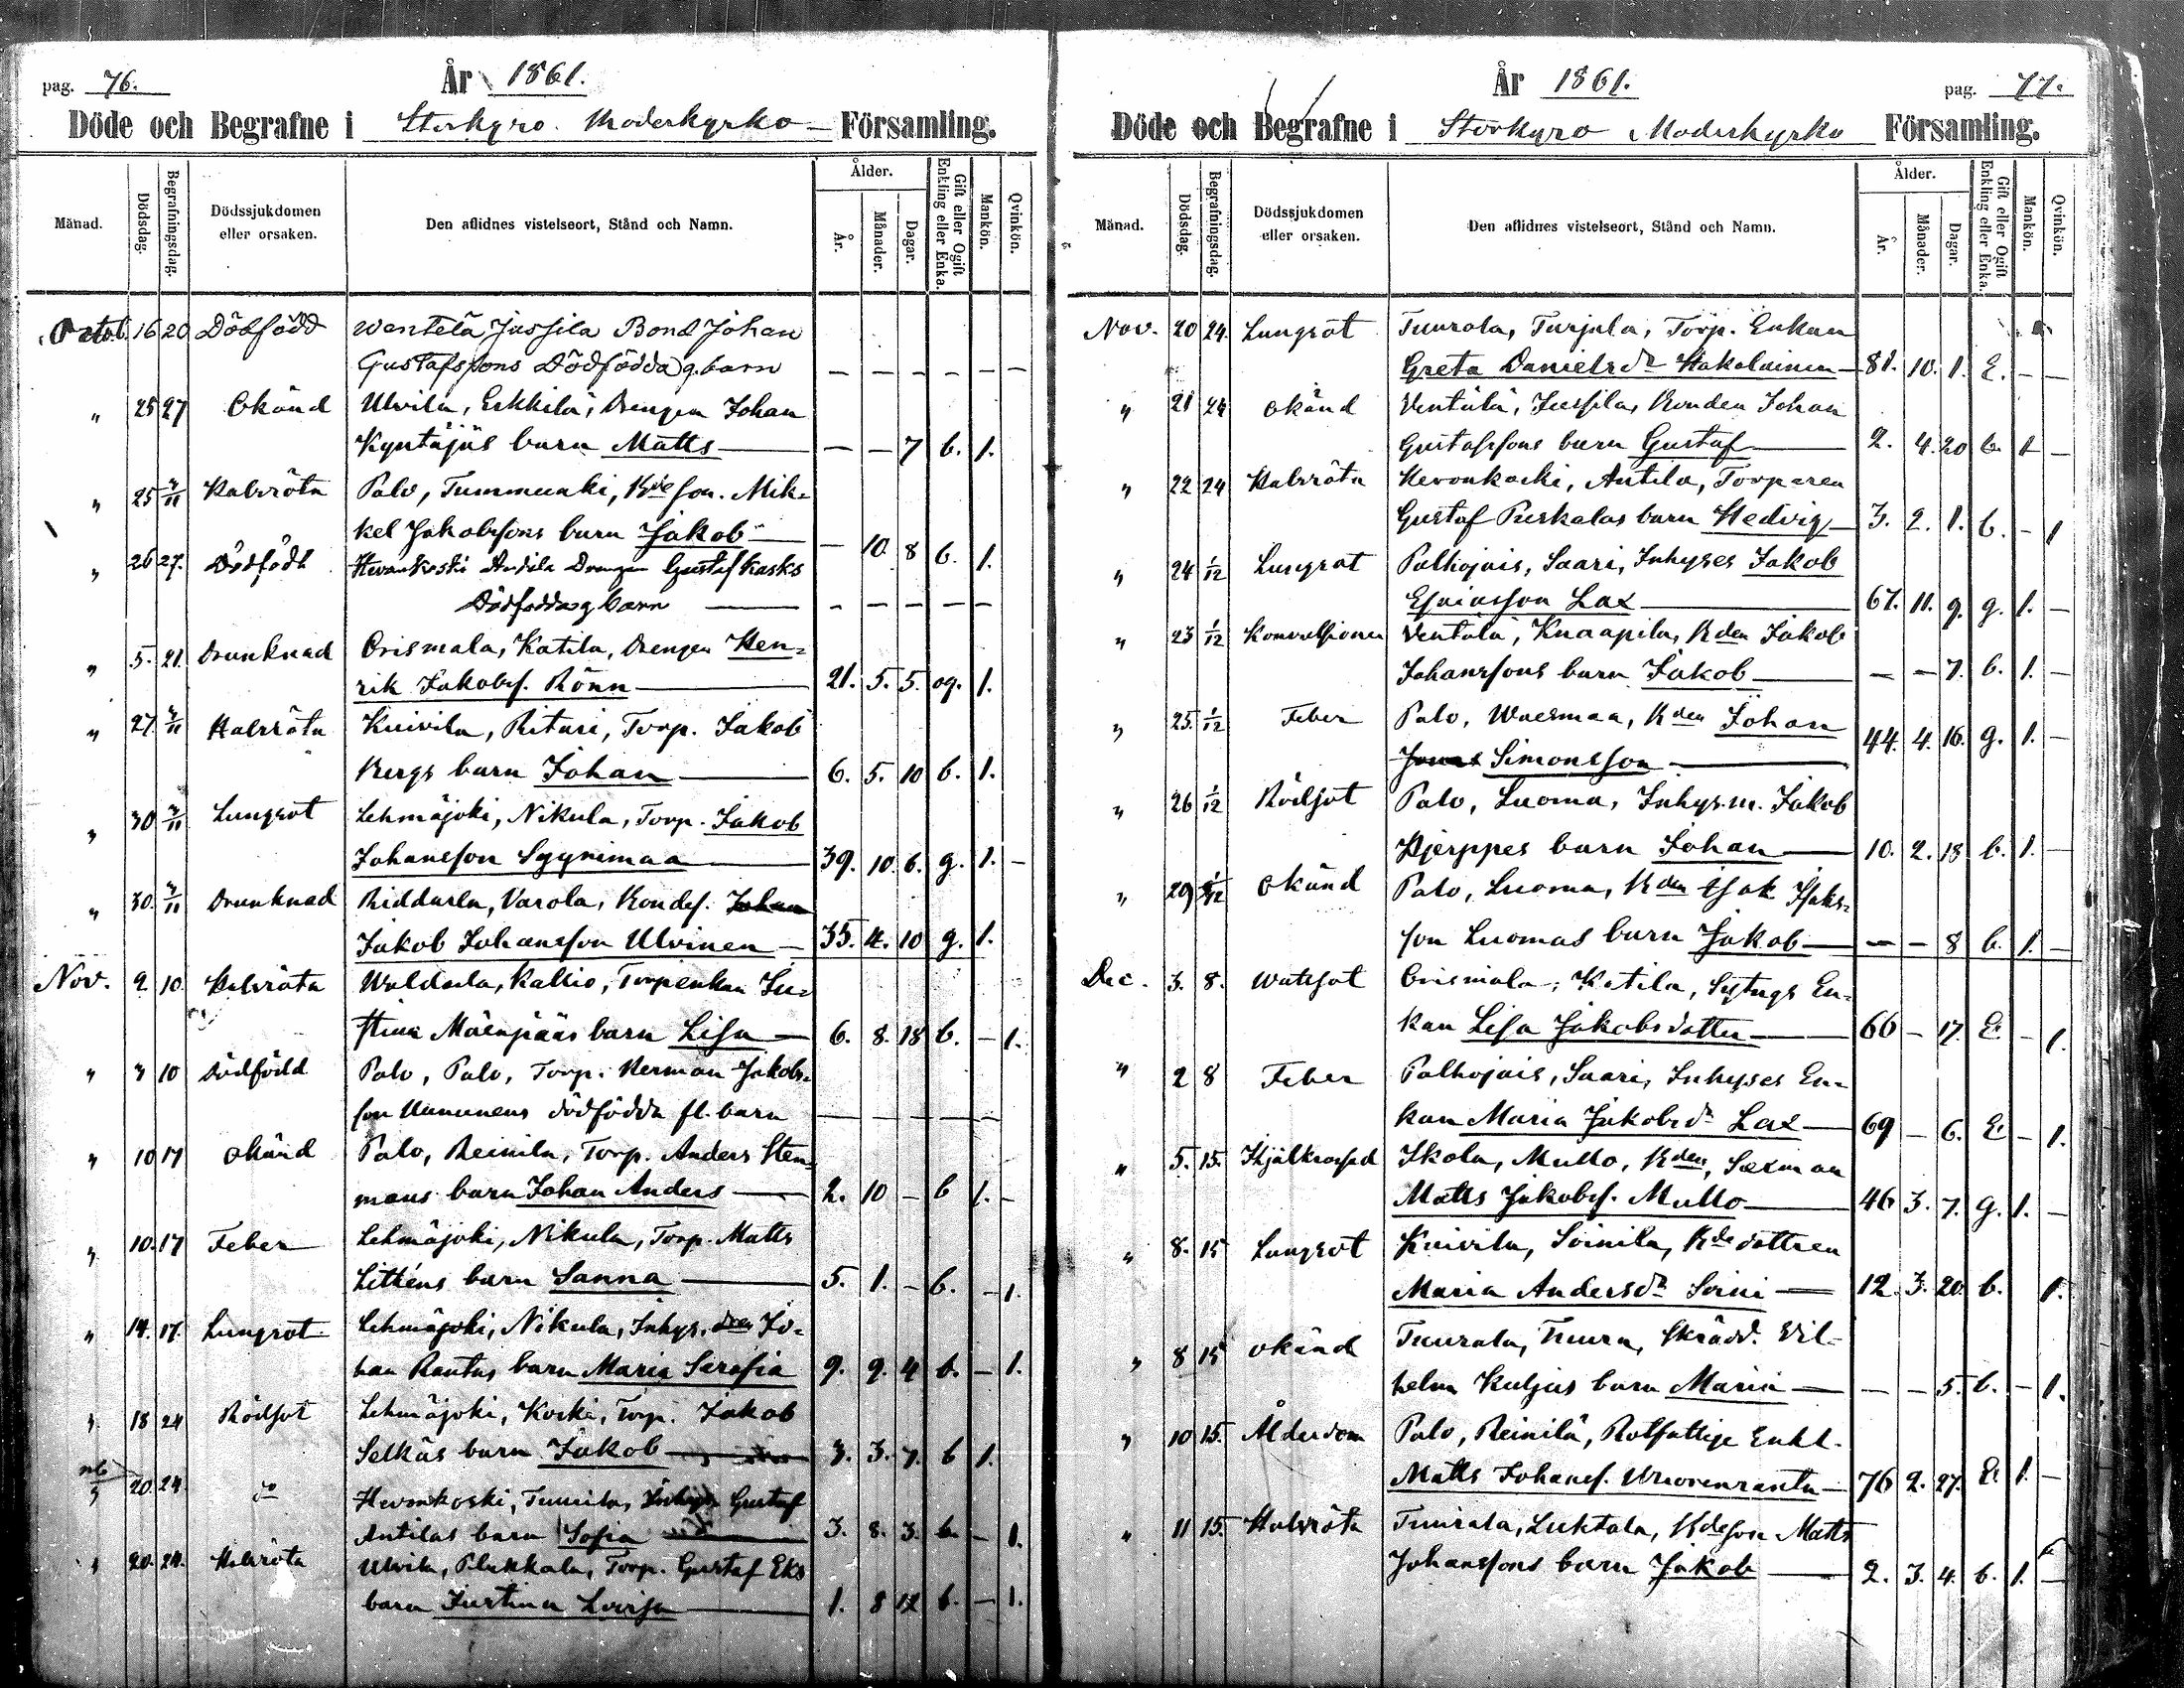 pag. 76.
År 1861.
Döde och Begrafne i Storkyro Moderkyrko Församling.
Månad. Dödsdag. Begrafningsdag. Dödssjukdomen eller orsaken. Den aflidnes vistelseort, Stånd och Namn. Ålder. År. Månader. Dagar. Gift eller Ogift Enkling eller Enka. Mankön. Qvinkön.
Octob. 16 20 Dödfödd Wentelä Jussila Bond Johan
Gustafssons Dödfödda g. barn — — — — — —
" 25 27 Okänd Ulvila, Erkkilä, Drengen Johan
Kyntäjäs barn Matts — — 7 b. 1.
" 25 3/11 Halsröta Palo, Tummunki, Bde son. Mik-
kel Jakobssons barn Jakob — 10 8 b. 1.
" 26 27. Dödfödd Hevonkoski Andila Drengen Gustaf Kasks
Dödfödda g barn — — — — —
" 5. 21. Drunknad Orismala, Katila, Drengen Hen-
rik Jakobs. Rönn 21. 5. 5. og. 1.
" 27. 3/11 Halsröta Kuivila, Ritari, Torp. Jakob
Bergs barn Johan 6. 5. 10 b. 1.
" 30 3/11 Lungsot Lehmäjoki, Nikula, Torp. Jakob
Johansson Syynimaa 39. 10. 6. g. 1. —
" 30. 3/11 Drunknad Riddarla, Varola, Bondes. Johan
Jakob Johansson Ulvinen 35. 4. 10 g. 1.
Nov. 2 10. Halsröta Waldarla, Kallio, Torpenkan Ju-
stina Mäenpääs barn Lisa 6. 8. 18 b. — 1.
" 3 10 Dödfödd Palo, Palo, Torp. Herman Jakobs-
son dödfödda fl. barn — — — — —
" 10 17 Okänd Palo, Reinila, Torp. Anders Sten-
mans barn Johan Anders 2. 10 — b 1. —
" 10. 17 Feber Lehmäjoki, Nikula, Torp. Matts
Litthéns barn Sanna 5. 1. — b. — 1.
" 14. 17. Lungsot Lehmäjoki, Nikula, Inhys. dren Jo-
han Rantas barn Maria Serafia 9. 9. 4 b. — 1.
" 18 24 Rödsot Lehmäjoki, Koski, Torp. Jakob
Selkäs barn Jakob 3. 3. 7. b 1.
" 20. 24. do Hevonkoski, Tuurila, Inhys Gustaf
Antilas barn Sofia 3. 8. 3. b. — 1.
" 20. 24. Halsröta Ulvila, Plukkala, Torp. Gustaf Eks
barn Justina Lovisa 1. 8 12 b. — 1.
År 1861.
pag. 77.
Döde och Begrafne i Storkyro Moderkyrko Församling.
Månad. Dödsdag. Begrafningsdag. Dödssjukdomen eller orsaken. Den aflidnes vistelseort, Stånd och Namn. Ålder. År. Månader. Dagar. Gift eller Ogift Enkling eller Enka. Mankön. Qvinkön.
Nov. 20 24. Lungsot Tuurala, Turjala, Torp. Enkan
Greta Danielsdr Hakolainen 81. 10. 1. E. — —
" 21 24 Okänd Ventälä, Jussila, Bonden Johan
Gustafssons barn Gustaf 2. 4. 20 b. 1 —
" 22 24 Halsröta Hevonkoski, Antila, Torparen
Gustaf Puskalas barn Hedvig 3. 2. 1. b. — 1
" 24 1/12 Lungsot Palhojais, Saari, Inhyses Jakob
Esaiasson Lax 67. 11. 9. g. 1. —
" 23 1/12 Konvulsioner Ventälä, Knaapila, Bden Jakob
Johanssons barn Jakob — — 7. b. 1. —
" 25. 1/12 Feber Palo, Waesmaa, Bden Johan
Jonas Simonsson 44. 4. 16. g. 1. —
" 26 1/12 Rödsot Palo, Luoma, Inhys.m. Jakob
Hjerppes barn Johan 10. 2. 18 b. 1. —
" 29 1/12 Okänd Palo, Luoma, Bden Isak Isaks-
son Luomas barn Jakob — — 8 b. 1. —
Dec. 3. 8. Watusot Orismala, Katila, Sytnigs En-
kan Lisa Jakobsdotter 66 — 17. E — 1.
" 2 8 Feber Palhojais, Saari, Inhyses En-
kan Maria Jakobsdr Lax 69 — 6. E — 1.
" 5. 15. Ihjälkrossad Ikola, Mullo, Bden, Sexman
Matts Jakobs. Mullo 46 3. 7. g. 1. —
" 8. 15 Lungsot Kuivila, Soinila, Bde dottren
Maria Andersdr Soini 12. 3. 20. b. 1.
" 8 15 okänd Tuurala, Tuura, Skrädd. Vil-
helm Kuljus barn Maria — — 5. b. — 1.
" 10 15. Ålderdom Palo, Reinilä, Rotfattige Enkl.
Matts Johans. Uuorenranta 76 2. 27. E 1. —
" 11 15. Halsröta Tuurala, Luktala, Bdeson Matts
Johanssons barn Jakob 2. 3. 4. b. 1. —